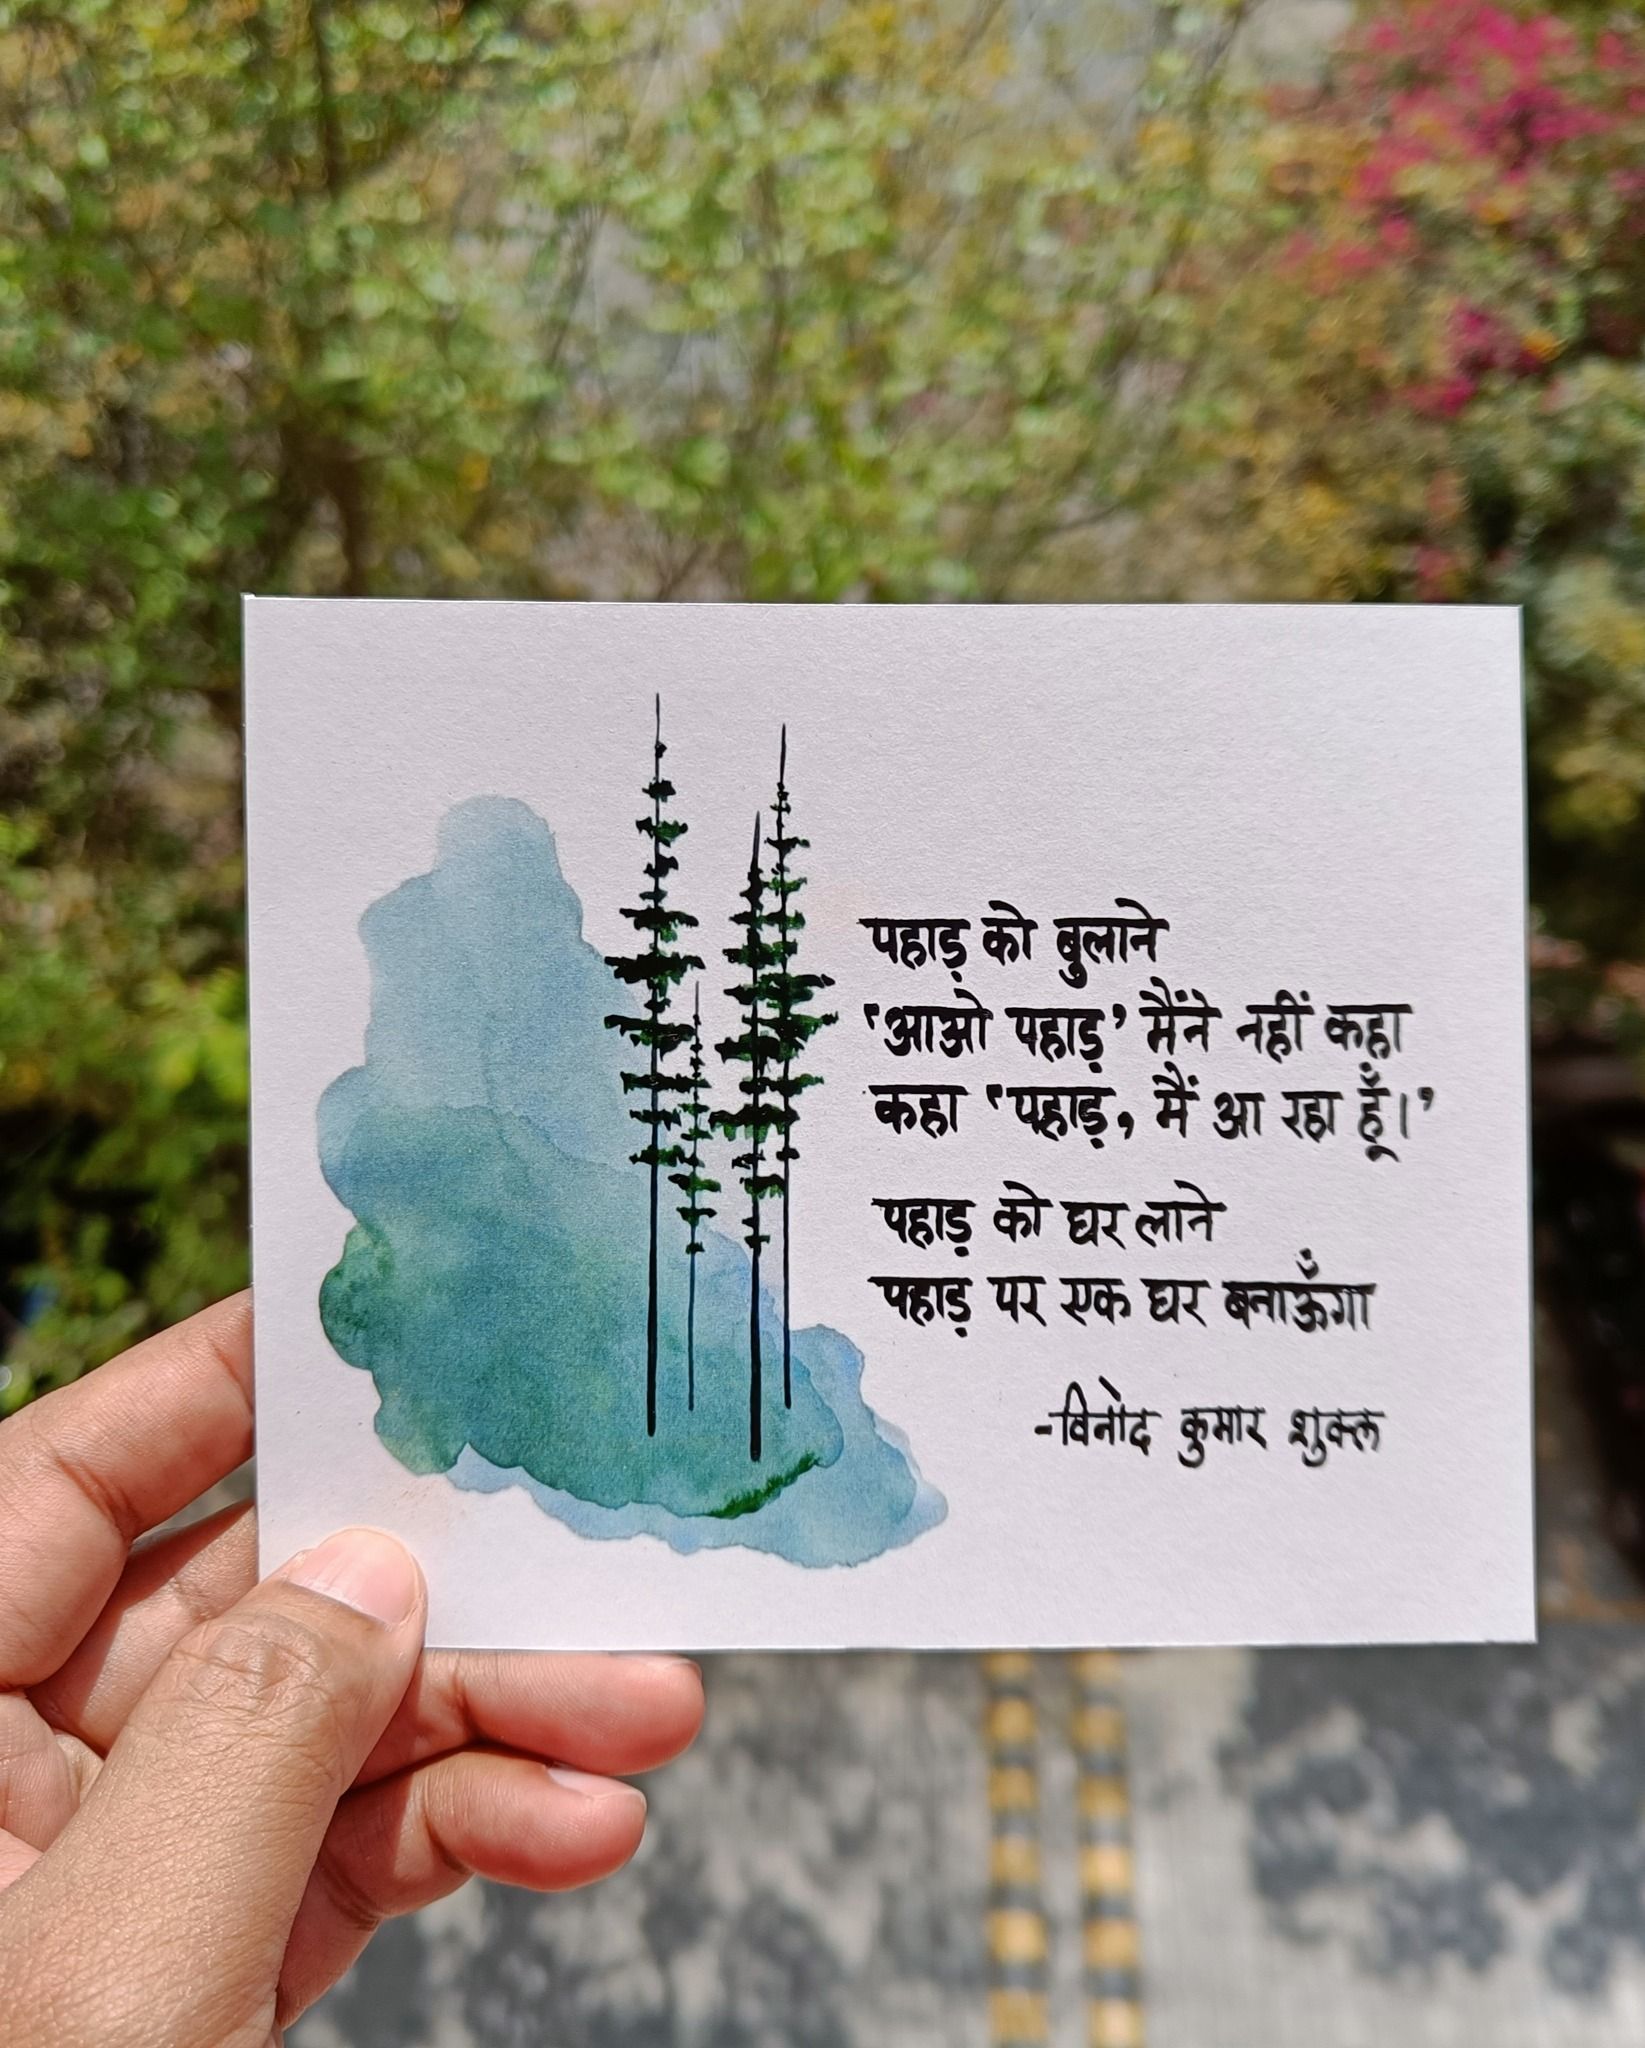 पहाड़ को बुलाने
'आओ पहाड़' मैंने नहीं कहा
कहा 'पहाड़, मैं आ रहा हूँ।'
पहाड़ को घर लाने
पहाड़ पर एक घर बनाऊँगा
-विनोद कुमार शुक्ल